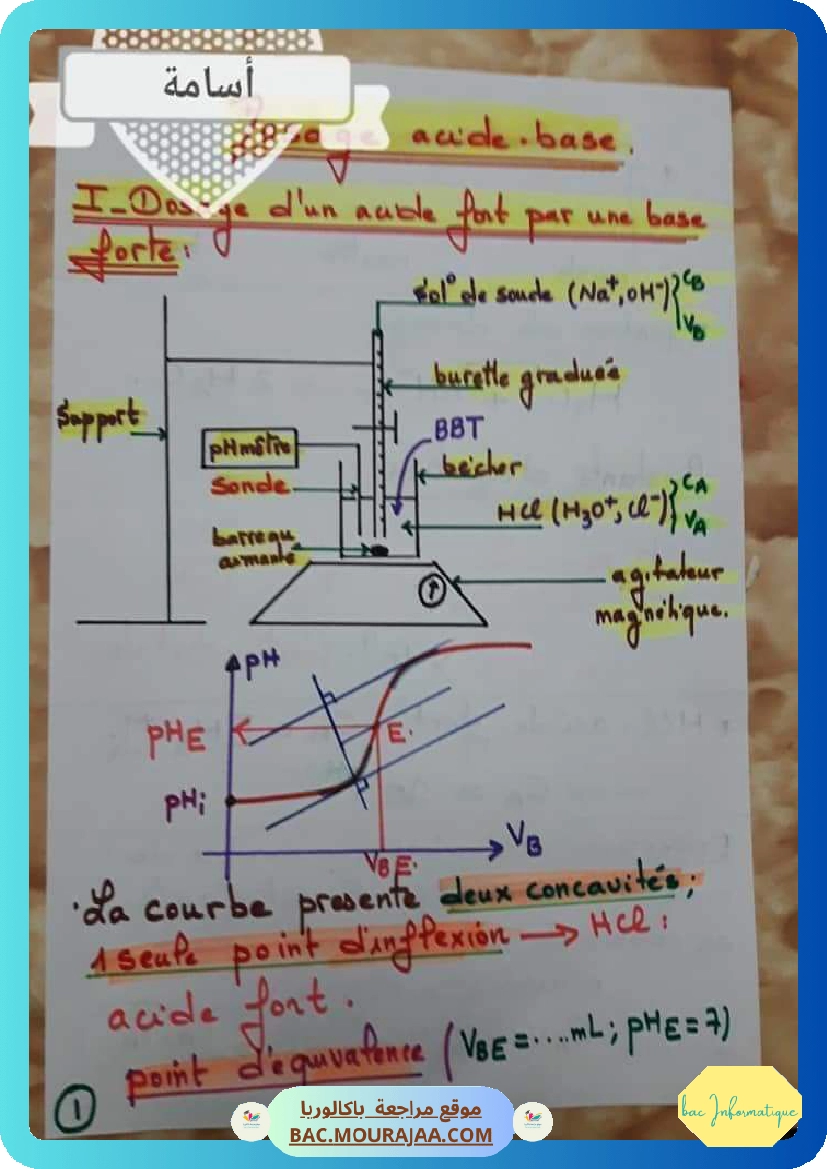 أسامة
acide-base.
I-Dosage d'un acide fort par une base
forte:
Sol° de soude (Na⁺, OH⁻) } CB
VB
burette graduée
Support
BBT
pH mètre
bécher
Sonde
HCl (H₃O⁺, Cl⁻) } CA
VA
barreau
aimanté
agitateur
magnétique.
pH
pHE
E.
pHi
VB
VBE.
. La courbe presente deux concavités;
1 seule point d'inflexion → HCl:
acide fort.
point d'équivalence (VBE = ....mL; pHE = 7)
1
موقع مراجعة باكالوريا
BAC.MOURAJAA.COM
bac Informatique